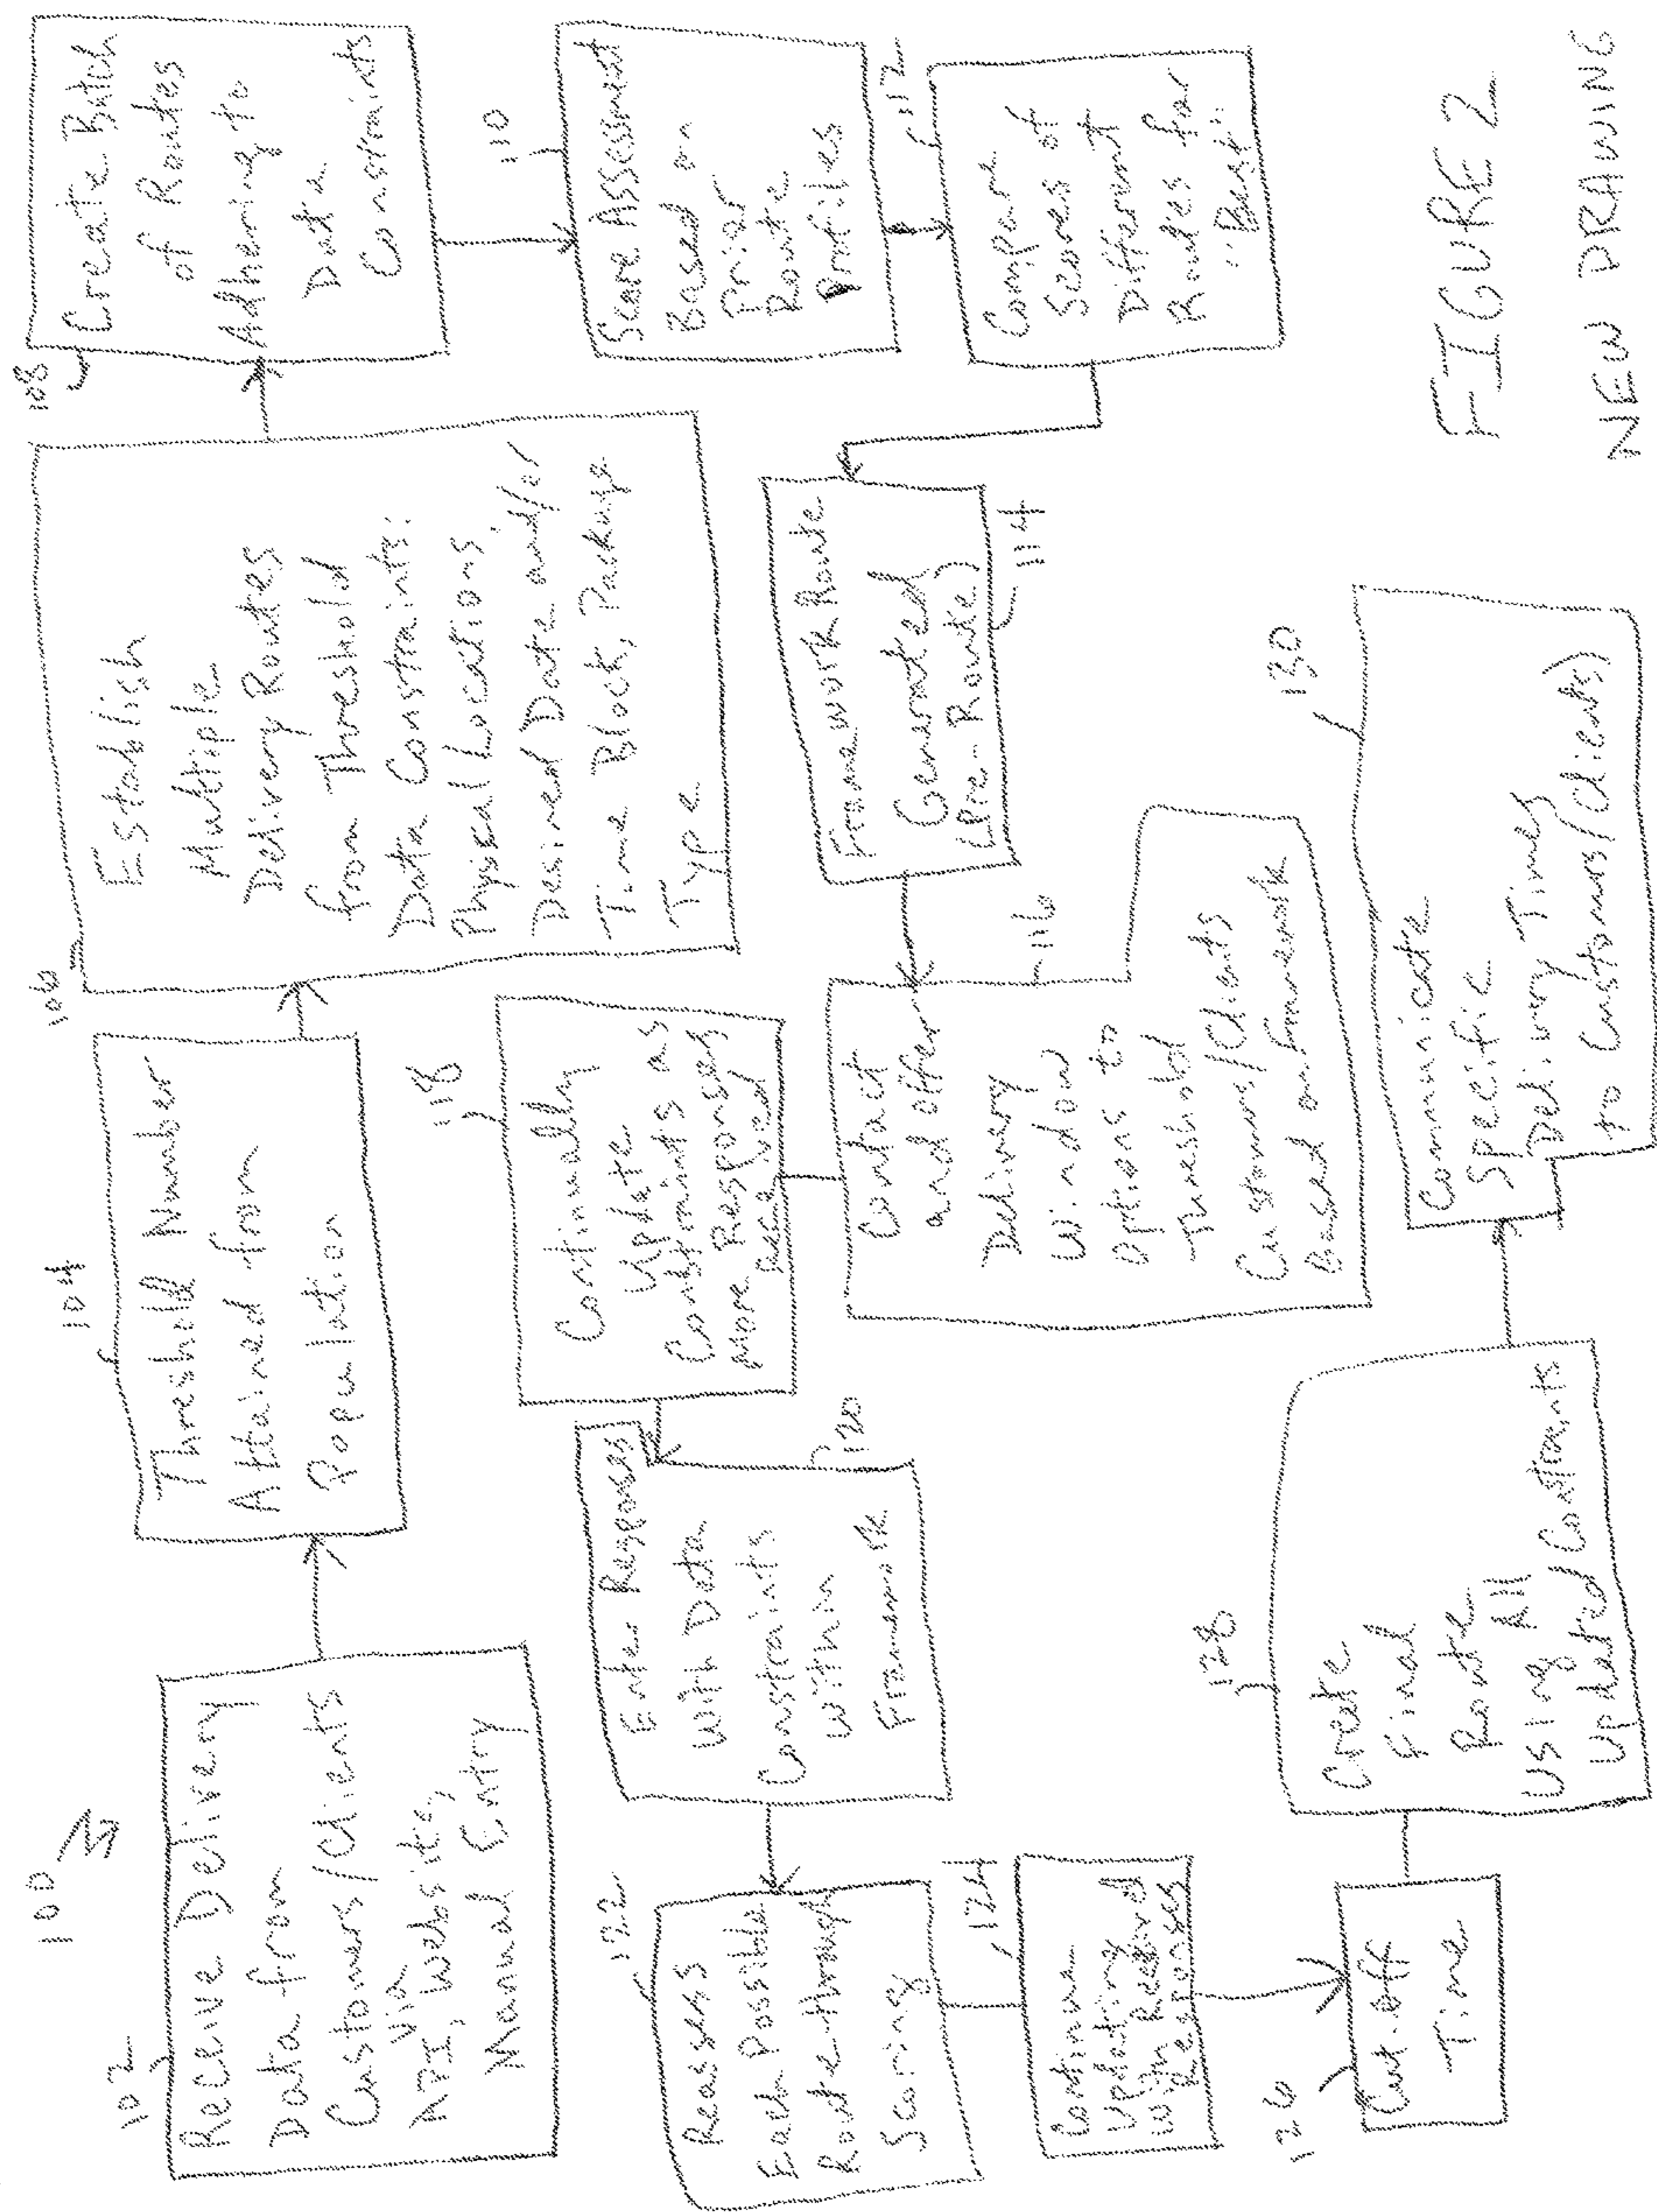 100
102
Receive Delivery
Data from
Customers/Clients
via
API, Website,
Manual Entry
104
Threshold Number
Attained from
Population
106
Establish
Multiple
Delivery Routes
from Threshold
Data Constraints:
Physical Locations,
Desired Date and/or
Time Block, Package
Type
108
Create Batch
of Routes
Adhering to
Data
Constraints
110
Score Assessment
Based on
Prior
Route
Profiles
112
Compare
Scores of
Different
Routes for
"Best"
Framework Route
Generated
(Pre-Route)
114
116
Contact
and offer
Delivery
Window
Options to
Threshold
Customers/Clients
Based on Framework
118
Continually
Update
Constraints as
More Responses
Received
120
Enter Responses
With Data
Constraints
within
Framework
122
Reasses
Each Possible
Route through
Scoring
124
Continue
Updating
with Received
Responses
126
Cut-off
Time
128
Create
Final
Route
Using All
Updated Constraints
130
Communicate
Specific
Delivery Times
to Customers/Clients)
FIGURE 2
NEW DRAWING